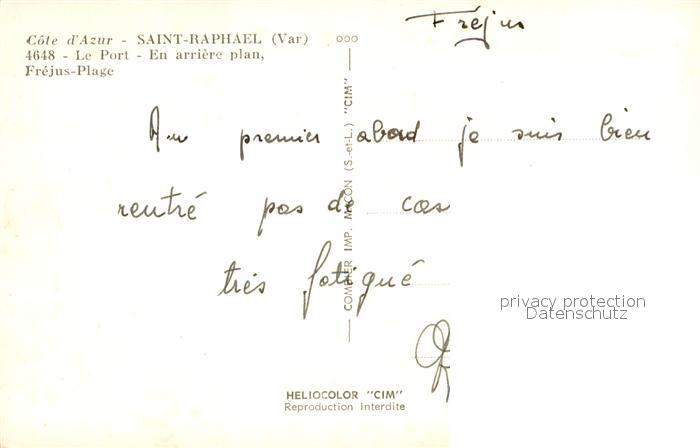 Fréjus
Côte d'Azur - SAINT-RAPHAEL (Var)
4648 - Le Port - En arrière plan,
Fréjus-Plage
Au premier abord je suis bien
rentré pas de cas
très fatigué
COMBIER IMP. MACON (S.-et-L.) "CIM"
privacy protection
Datenschutz
HELIOCOLOR "CIM"
Reproduction interdite